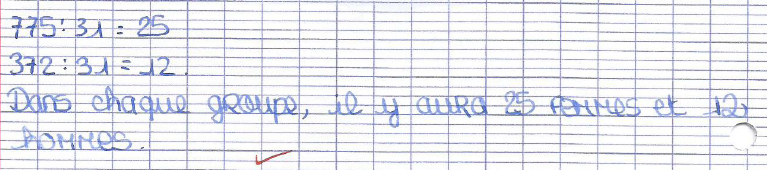 775 : 31 = 25
372 : 31 = 12.
Dans chaque groupe, il y aura 25 femmes et 12
hommes.